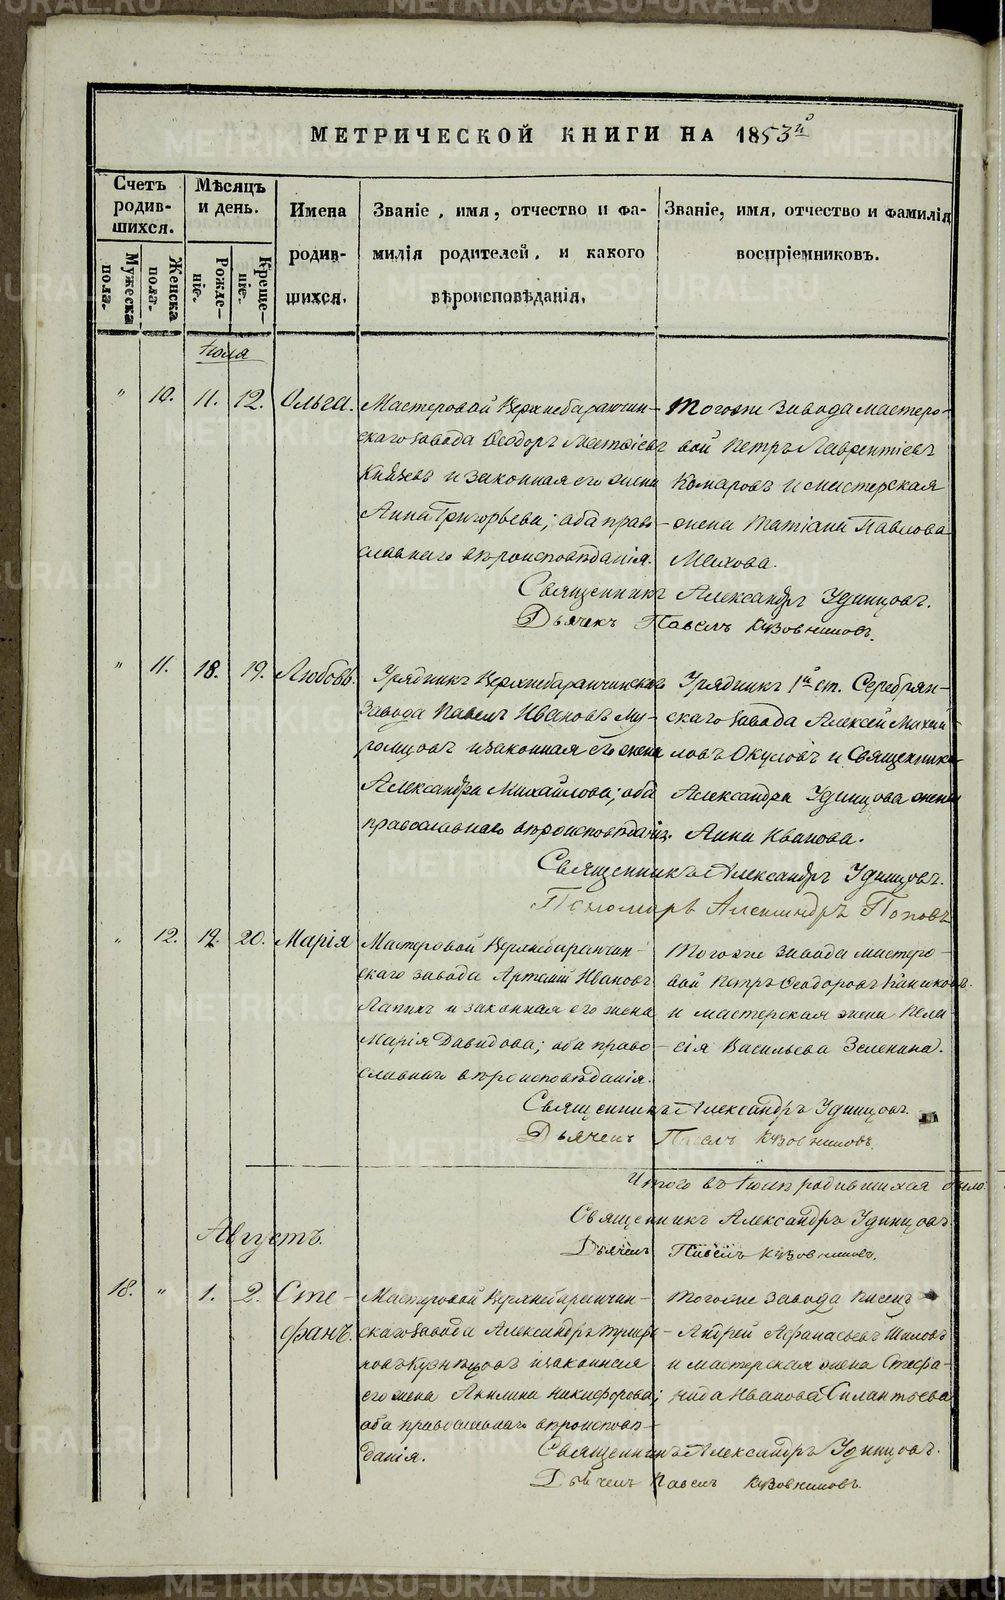 МЕТРИЧЕСКОЙ КНИГИ НА 1853й
Счетъ родив-шихся.
Мѣсяцъ и день.
Имена родив-шихся.
Званіе, имя, отчество и фа-
милія родителей, и какого
вѣроисповѣданія.
Званіе, имя, отчество и фамилія
воспріемниковъ.
Мужеска пола.
Женска пола.
Рожде-ніе.
Креще-ніе.
Іюля
" 10. 11. 12. Ольга.
Мастеровой Верхнебаранчин-
скаго завода Ѳеодоръ Матѳіевъ
Князевъ и законная его жена
Анна Григорьева; оба право-
славнаго вѣроисповѣданія.
Тогоже завода мастеро-
вой Петръ Лаврентіевъ
Комаровъ и мастерская
жена Татіана Павлова
Махова.
Священникъ Александръ Удинцовъ.
Дьячекъ Павелъ Кузовниковъ.
" 11. 18. 19. Любовь.
Урядникъ Верхнебаранчинскаго
завода Павелъ Ивановъ Му-
ромцовъ и законная его жена
Александра Михайлова; оба
православнаго вѣроисповѣданія.
Урядникъ 1й ст. Серебрян-
скаго завода Алексей Михай-
ловъ Окуловъ и Священника
Александра Удинцова жена
Анна Иванова.
Священникъ Александръ Удинцовъ.
Пономарь Александръ Поповъ
" 12. 19. 20. Марія
Мастеровой Верхнебаранчин-
скаго завода Артемій Ивановъ
Лапинъ и законная его жена
Марія Давидова; оба право-
славнаго вѣроисповѣданія.
Тогоже завода мастеро-
вой Петръ Ѳеодоровъ
и мастерская жена Пела-
гія Васильева Зеленина.
Священникъ Александръ Удинцовъ.
Дьячекъ Павелъ Кузовниковъ.
Итого въ Іюлѣ родившихся было
Священникъ Александръ Удинцовъ.
Дьячекъ Павелъ Кузовниковъ.
Августъ.
18. " 1. 2. Сте-
фанъ.
Мастеровой Верхнебаранчин-
скаго завода Александръ
Кузнецовъ и законная
его жена Акилина Никифорова;
оба православнаго вѣроисповѣ-
данія.
Тогоже завода писецъ
Андрей Афанасьевъ Шиловъ
и мастерская жена Стефа-
нида Иванова Силантьева
Священникъ Александръ Удинцовъ.
Дьячекъ Павелъ Кузовниковъ.
METRIKI.GASO-URAL.RU